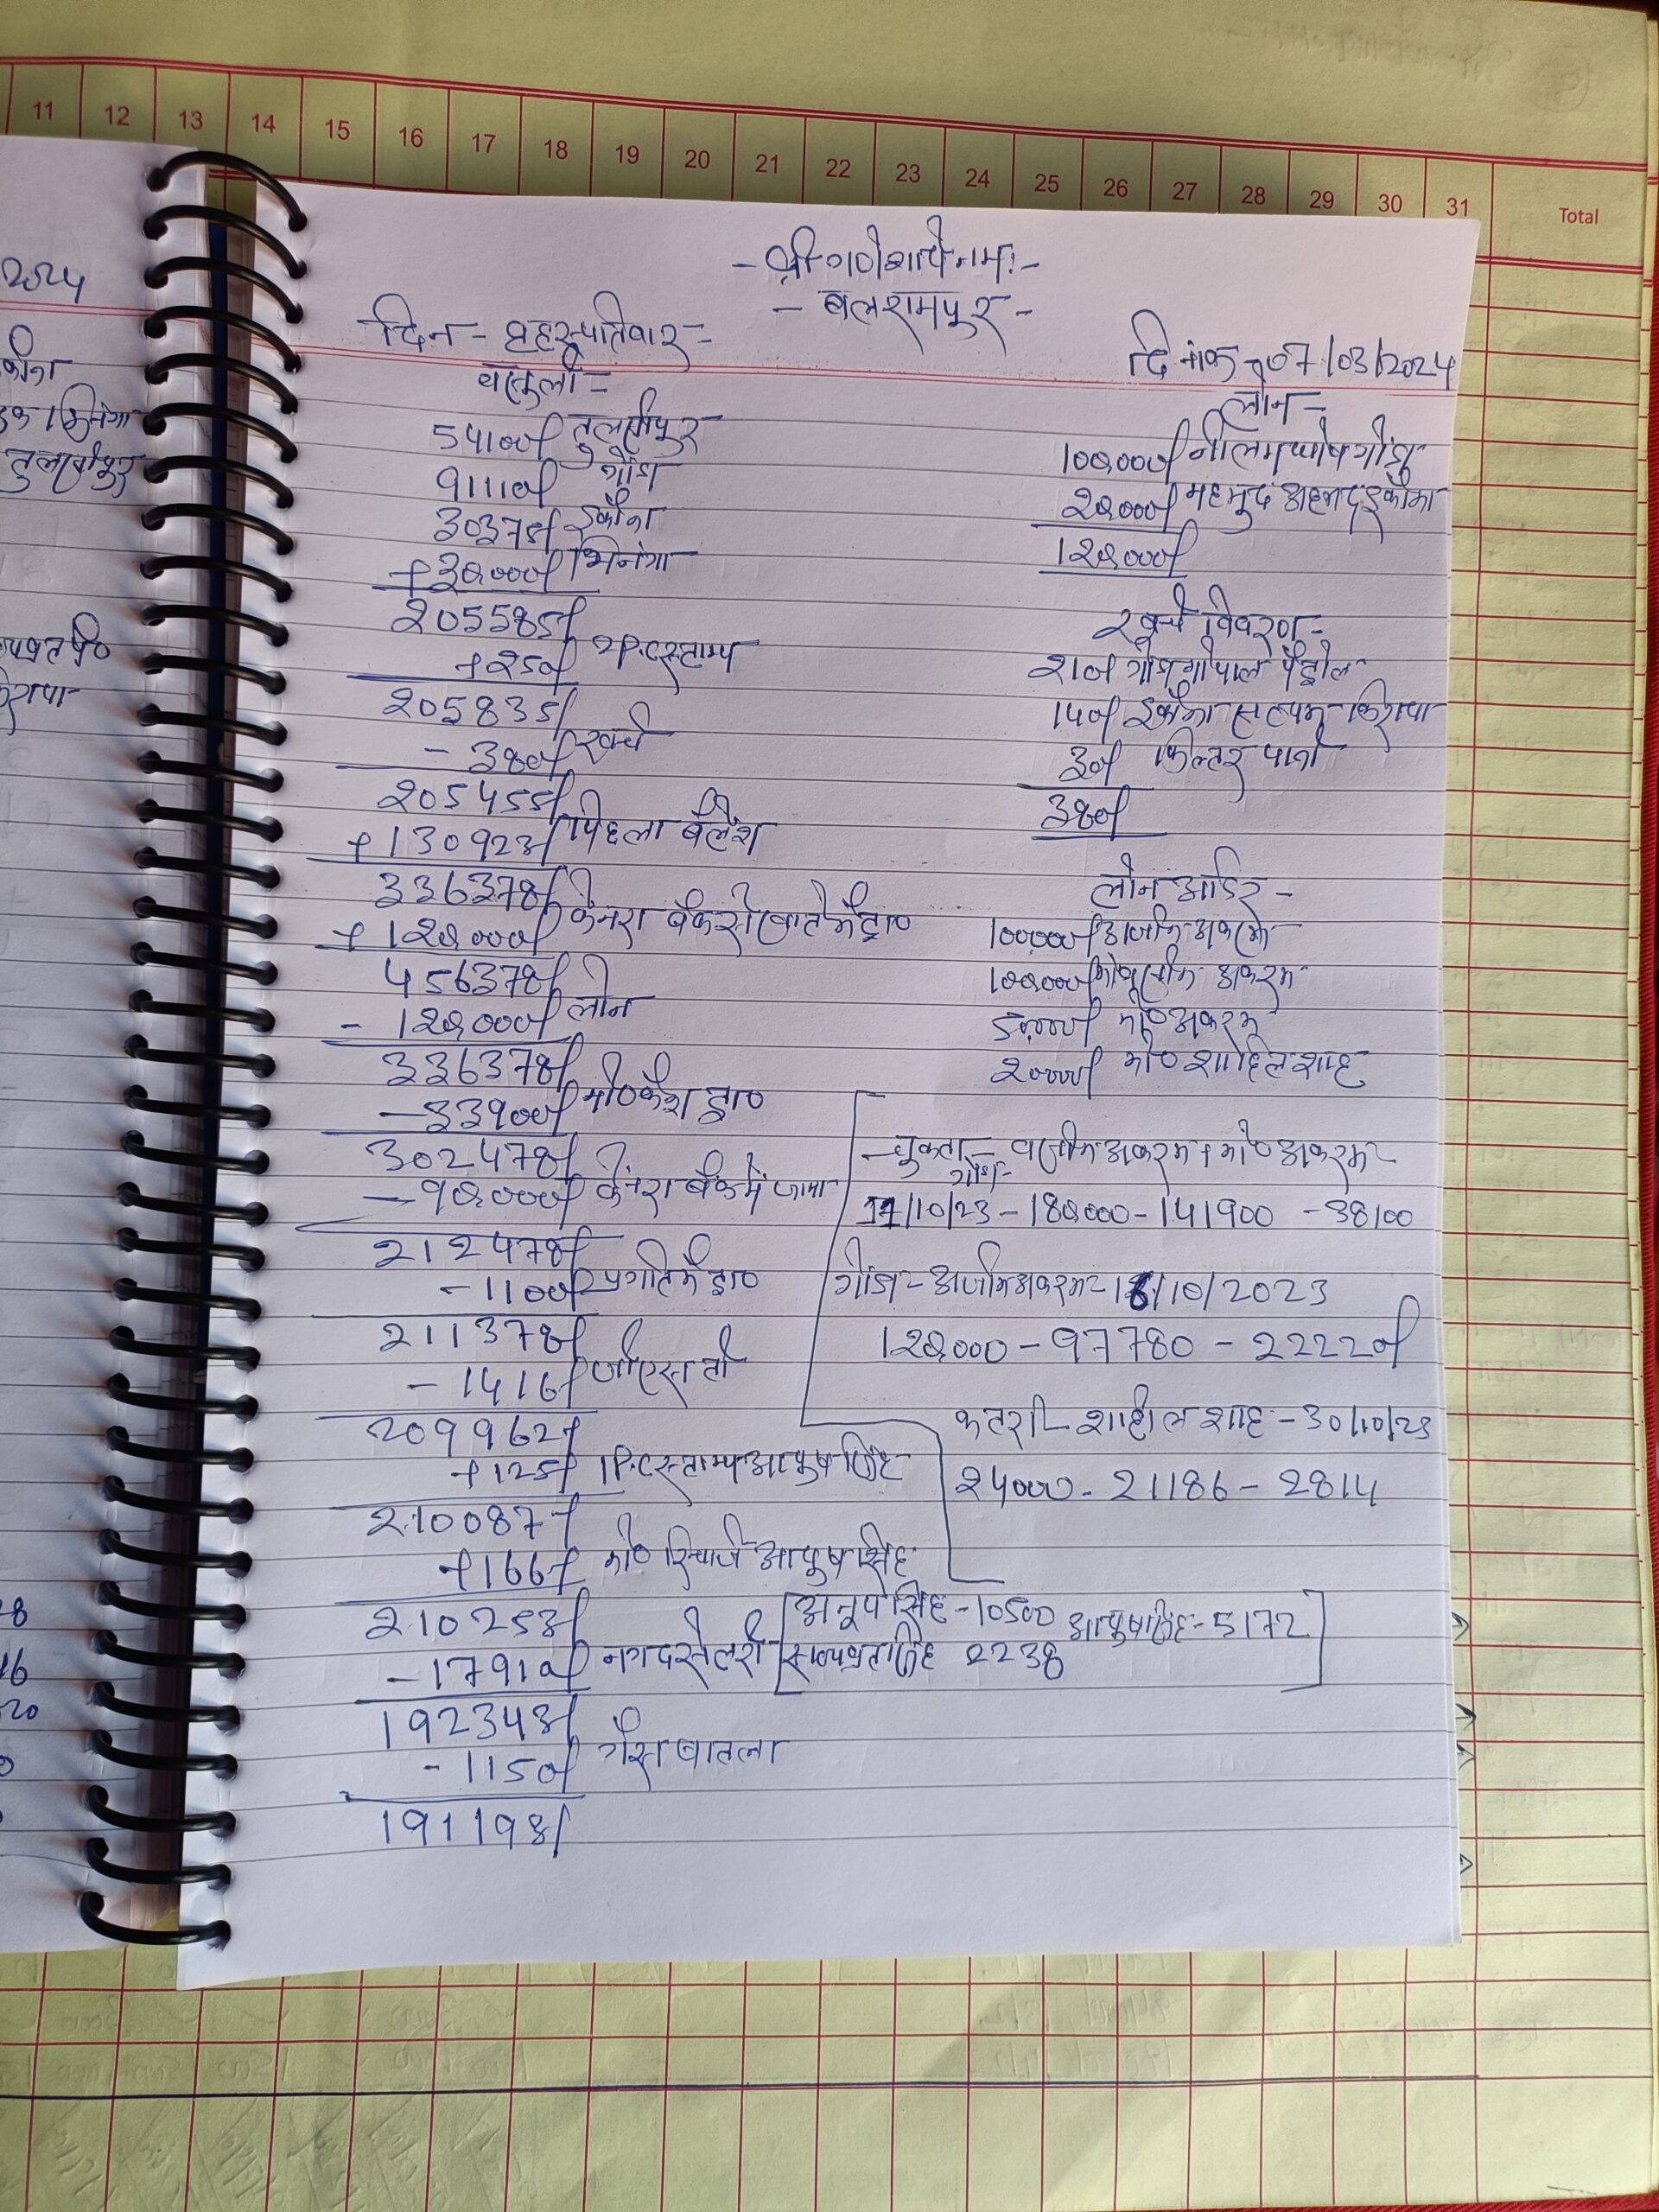 11 12 13 14 15 16 17 18 19 20 21 22 23 24 25 26 27 28 29 30 31 Total
- श्री गणेशाये नमः -
- बलरामपुर -
दिन - बृहस्पतिवार -
दिनांक - 07/03/2024
वसूली -
54100/ तुलसीपुर
91110/ गोंडा
30375/ इकौना
+30000/ भिनगा
205585/
+250/ 2P.C स्टाम्प
205835/
- 380/ खर्च
205455/
+130923/ पिछला बैलेंश
336378/
+120000/ केनरा बैंक से खाते में ट्रा०
456378/
- 120000/ लोन
336378/
-33900/ मो० कैश ट्रा०
302478/
-90000/ केनरा बैंक में जमा
212478/
-1100/ प्रगति में ट्रा०
211378/
-1416/ जीएसटी
209962/
+125/ 1P.C स्टाम्प आयुष सिंह
210087/
+166/ मो० रिचार्ज आयुष सिंह
210253/
-17910/ नगद सेलरी [अनूप सिंह - 10500 आयुष सिंह - 5172
सत्यव्रत सिंह 2238]
192343/
-1150/ गैस
191193/
लोन -
100000/ गोंडा
20000/ महमुद अहमद इकौना
120000/
खर्च विवरण -
200/ गोंडा गोपाल पेट्रोल
150/ इकौना सत्यम किराया
30/ फिल्टर पानी
380/
लोन आर्डर -
100000/ अजीम अकरम
100000/ अकरम
50000/ मो० अकरम
20000/ मो० शाहिल शाह
चुकता - वजीम अकरम + मो० अकरम -
गोंडा -
17/10/23 - 180000 - 141900 - 38100
गोंडा - अजीम अकरम - 18/10/2023
120000 - 97780 - 22220/
कटरा - शाहील शाह - 30/10/23
24000 - 21186 - 2814
2024
इकौना
भिनगा
तुलसीपुर